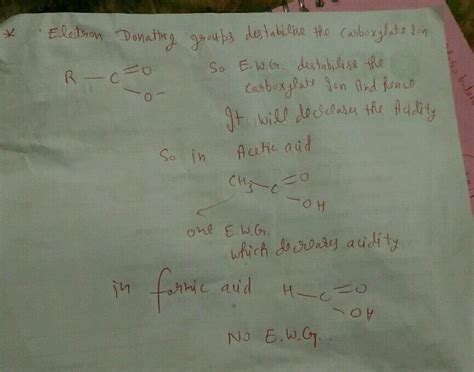 * Electron Donating groups destabilise the Carboxylate Ion
R - C = O
O-
So E.W.G. destabilise the
Carboxylate Ion And hence
It will decreases the Acidity
So in Acetic acid
CH3 - C = O
- OH
one E.W.G.
which decreases acidity
in formic acid
H - C = O
- OH
No E.W.G..